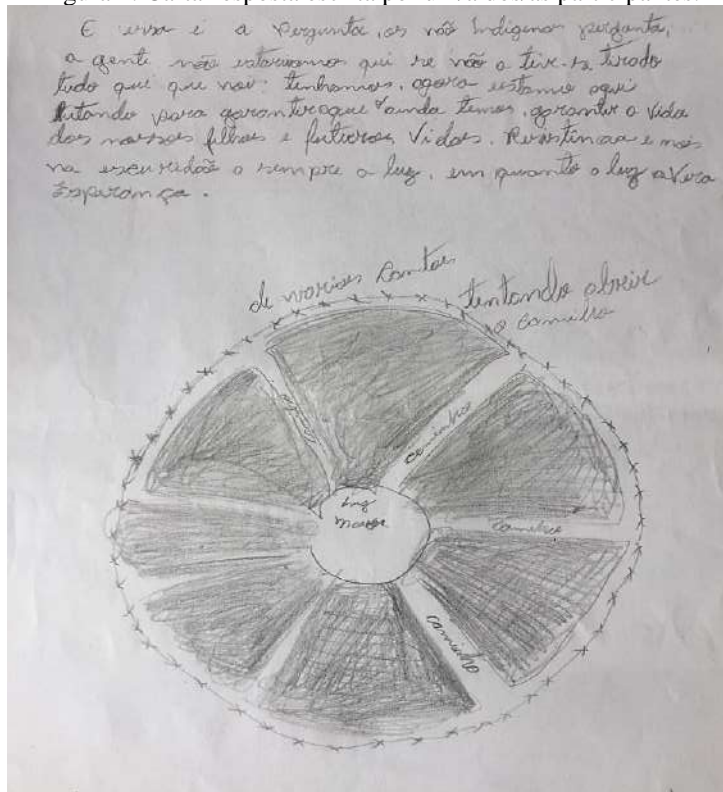 E essa é a pergunta, os não Indigenas pergunta,
a gente não estarvamos qui se não o tive-se tirado
tudo que que nois tenhamos, agora estamo aqui
lutando para garantir o que ainda temos, garantir a vida
dos nossos filhos e futuras Vidas. Resistincia e mais
na escuridão o sempre a luz, em quanto a luz avera
Esperança.
de varises Cantos tentando abrir
o caminho
caminho
caminho
caminho
luz